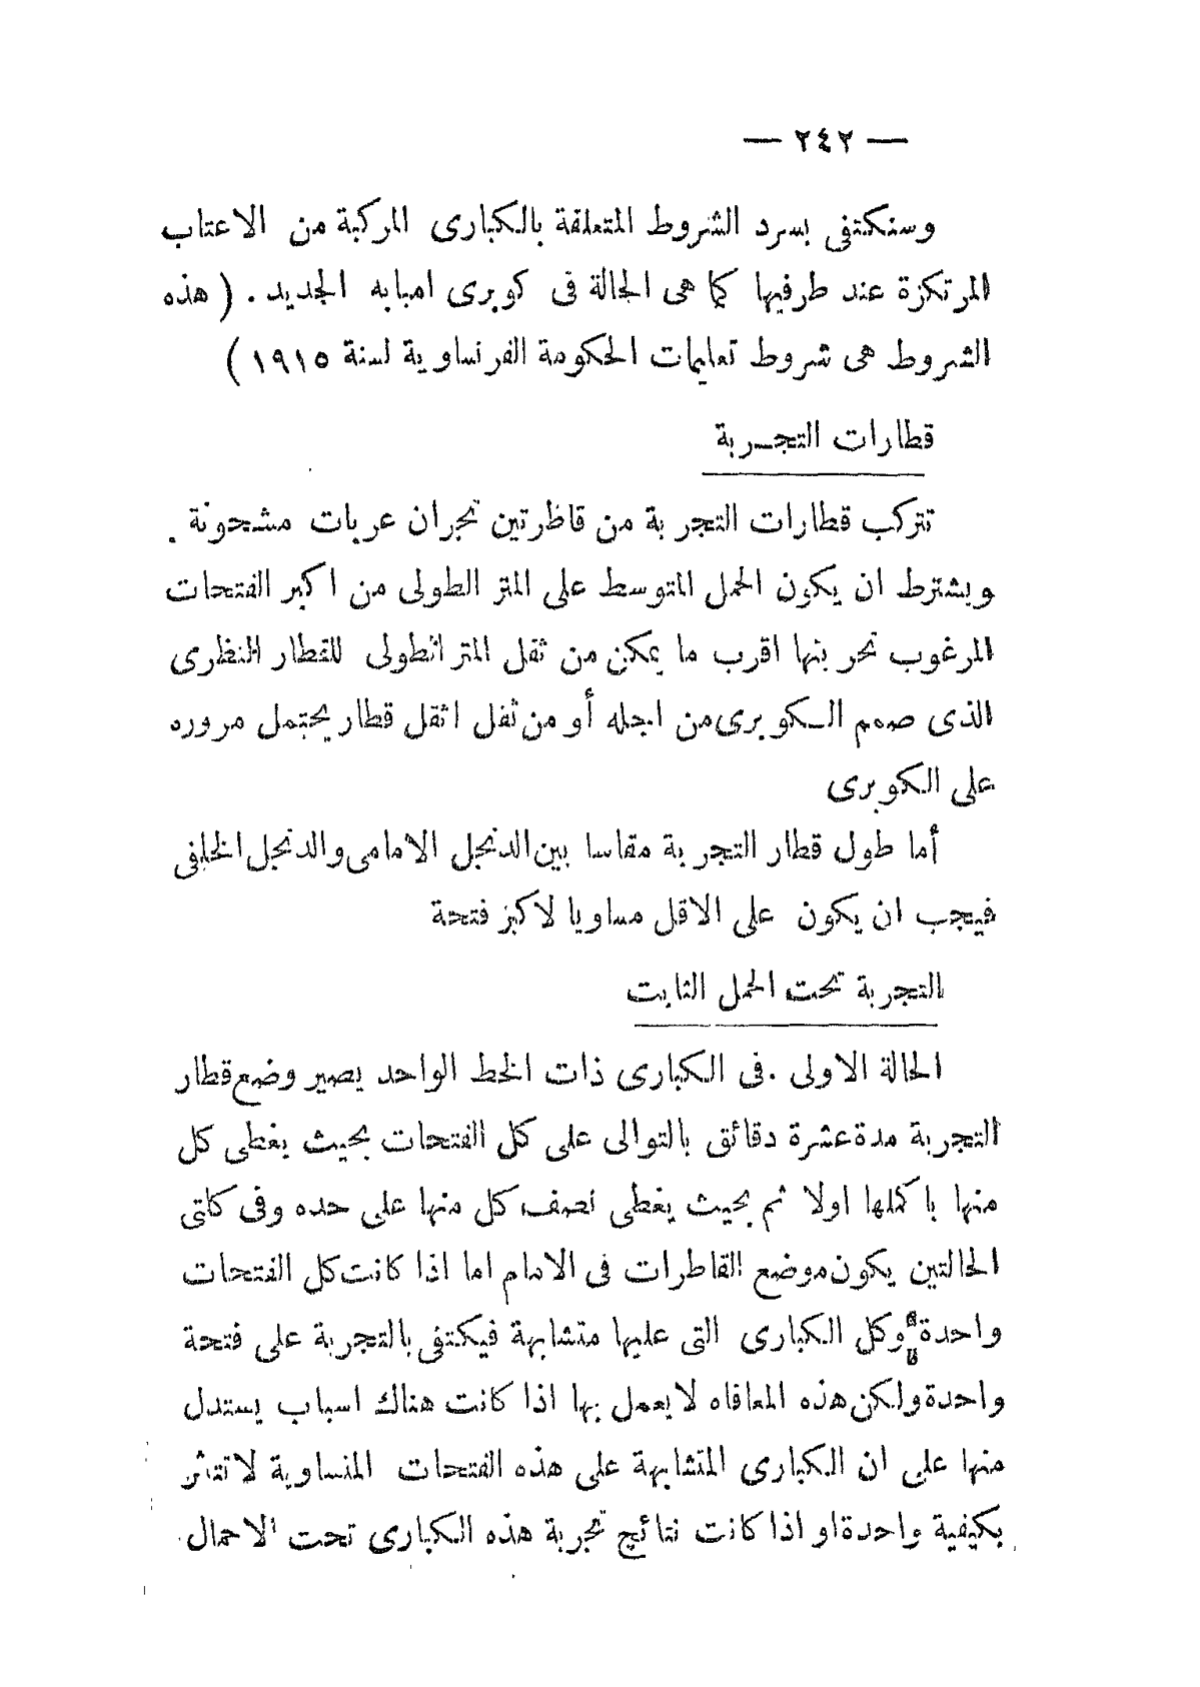 — ٢٤٢ —
وسنكتفى بسرد الشروط المتعلقة بالكبارى المركبة من الاعتاب
المرتكزة عند طرفيها كما هى الحالة فى كوبرى امبابه الجديد . ( هذه
الشروط هى شروط تعليمات الحكومة الفرنساوية لسنة ١٩١٥ )
قطارات التجربة
تتركب قطارات التجربة من قاظرتين تجران عربات مشحونة .
وبشترط ان يكون الحمل المتوسط على المتر الطولى من اكبر الفتحات
المرغوب تجربتها اقرب ما يمكن من ثقل المتر الطولى للقطار النظرى
الذى صمم الكوبرى من اجله أو من ثقل اثقل قطار يحتمل مروره
على الكوبرى
أما طول قطار التجربة مقاسا بين الدنجل الامامى والدنجل الخلفى
فيجب ان يكون على الاقل مساويا لاكبر فتحة
التجربة تحت الحمل الثابت
الحالة الاولى . فى الكبارى ذات الخط الواحد يصير وضع قطار
التجربة مدة عشرة دقائق بالتوالى على كل الفتحات بحيث يغطى كل
منها باكملها اولا ثم بحيث يغطى نصف كل منها على حده وفى كلتى
الحالتين يكون موضع القاطرات فى الامام اما اذا كانت كل الفتحات
واحدة وكل الكبارى التى عليها متشابهة فيكتفى بالتجربة على فتحة
واحدة ولكن هذه المعافاه لا يعمل بها اذا كانت هناك اسباب يستدل
منها على ان الكبارى المتشابهة على هذه الفتحات المتساوية لا تتأثر
بكيفية واحدة او اذا كانت نتائج تجربة هذه الكبارى تحت الاحمال